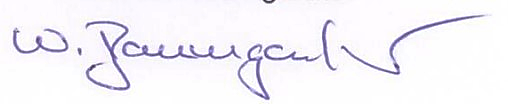 W. Baumgartner